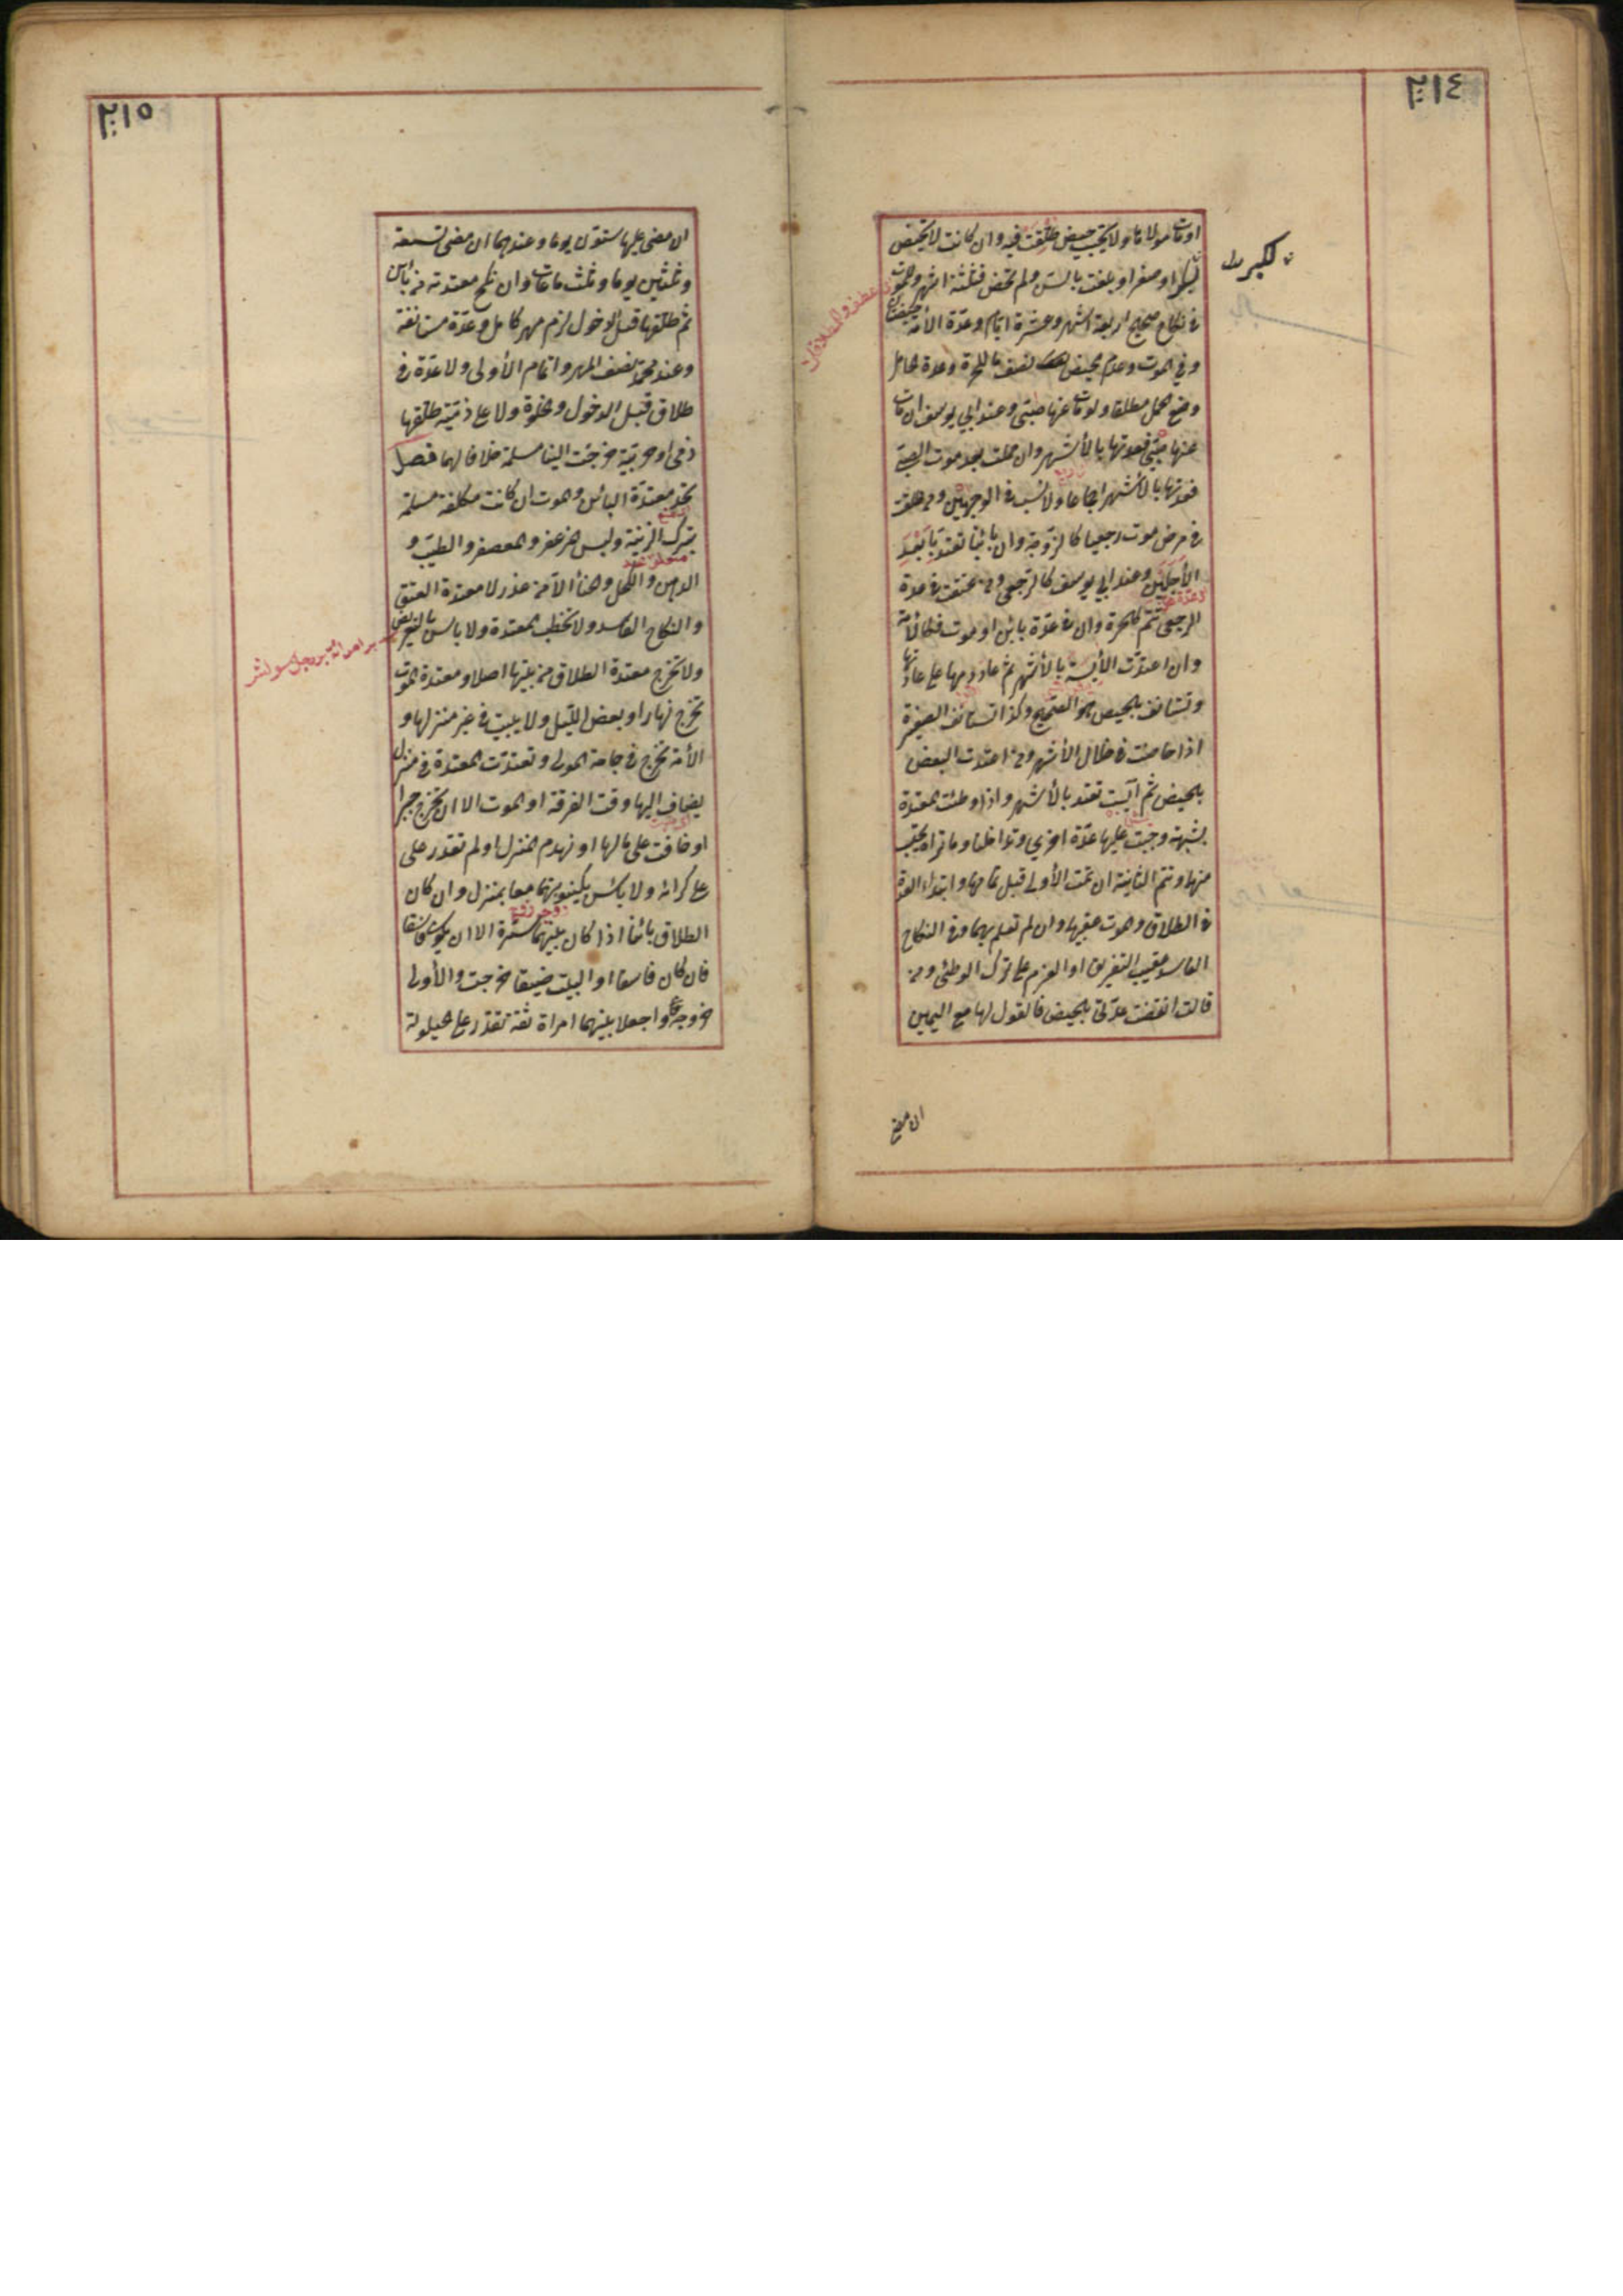 ٢١٤
او مات مولاها ولا يحتسب حيض طلقت فيه وان كانت لا تحيض
لكبر او صغر او بلغت بالسن ولم تحض فثلثة اشهر وللموت
فى نكاح صحيح اربعة اشهر وعشرة ايام وعدة الأمة حيضتان
وفي الموت وعدم الحيض نصف ما للحرة وعدة الحامل
وضع الحمل مطلقا ولو مات عنها صبى وعند ابي يوسف ان مات
عنها صبى فعدتها بالأشهر وان حملت بعد موت الصبى
فعدتها بالأشهر اجماعا ولا نسب فى الوجهين ومن طلقت
فى مرض موت رجعيا كالزوجة وان بائنا تعتد بابعد
الأجلين وعند ابي يوسف كالرجعى ومن عتقت فى عدة
الرجعى تتم كالحرة وان فى عدة بائن او موت فكالأمة
وان اعتدت الأيسة بالأشهر ثم عاد دمها على عادتها
وتستانف بالحيض هو الصحيح وكذا تستانف الصغيرة
اذا حاضت فى خلال الأشهر ومن اعتدت البعض
بالحيض ثم آيست تعتد بالأشهر واذا وطئت المعتدة
بشبهة وجبت عليها عدة اخرى وتداخلتا وما تراه يحتسب
منهما وتتم الثانية ان تمت الأولى قبل تمامها وابتداء العدة
فى الطلاق والموت عقيبهما وان لم تعلم بهما وفى النكاح
الفاسد عقيب التفريق او العزم على ترك الوطئ ومن
قالت انقضت عدتى بالحيض فالقول لها مع اليمين
ان مضى
٢١٥
ان مضى عليها ستون يوما وعندهما ان مضى تسعة
وثلثين يوما وثلث ساعات وان نكح معتدته من بائن
ثم طلقها قبل الدخول لزم مهر كامل وعدة مستانفة
وعند محمد نصف المهر واتمام الأولى ولا عدة فى
طلاق قبل الدخول والخلوة ولا على ذمية طلقها
ذمى او حربية خرجت الينا مسلمة خلافا لهما فصل
تحد معتدة البائن والموت ان كانت مكلفة مسلمة
بترك الزينة ولبس المزعفر والمعصفر والطيب و
الدهن والكحل والحنأ الا من عذر لا معتدة العتق
والنكاح الفاسد ولا تخطب المعتدة ولا باس بالتعريض
ولا تخرج معتدة الطلاق من بيتها اصلا ومعتدة الموت
تخرج نهارا وبعض الليل ولا يبيت فى غير منزلها و
الأمة تخرج فى حاجة المولى وتعتدت المعتدة فى منزل
يضاف اليها وقت الفرقة او الموت الا ان تخرج جبرا
او خافت على مالها او نهدم المنزل او لم تقدر على
على كرائه ولا بأس بكينونتهما معا بمنزل وان كان
الطلاق بائنا اذا كان بينهما سترة الا ان يكون فاسقا
فان كان فاسقا او البيت ضيقا خرجت والأولى
خروجه وان جعلا بينهما امراة ثقة تقدر على الحيلولة